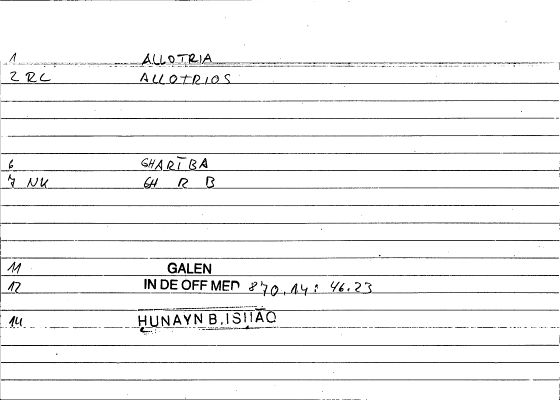 1 ALLOTRIA
2 RC ALLOTRIOS
6 GHARĪBA
7 NK GH R B
11 GALEN
12 IN DE OFF MED 870.14: 46.23
14 HUNAYN B.ISHAQ